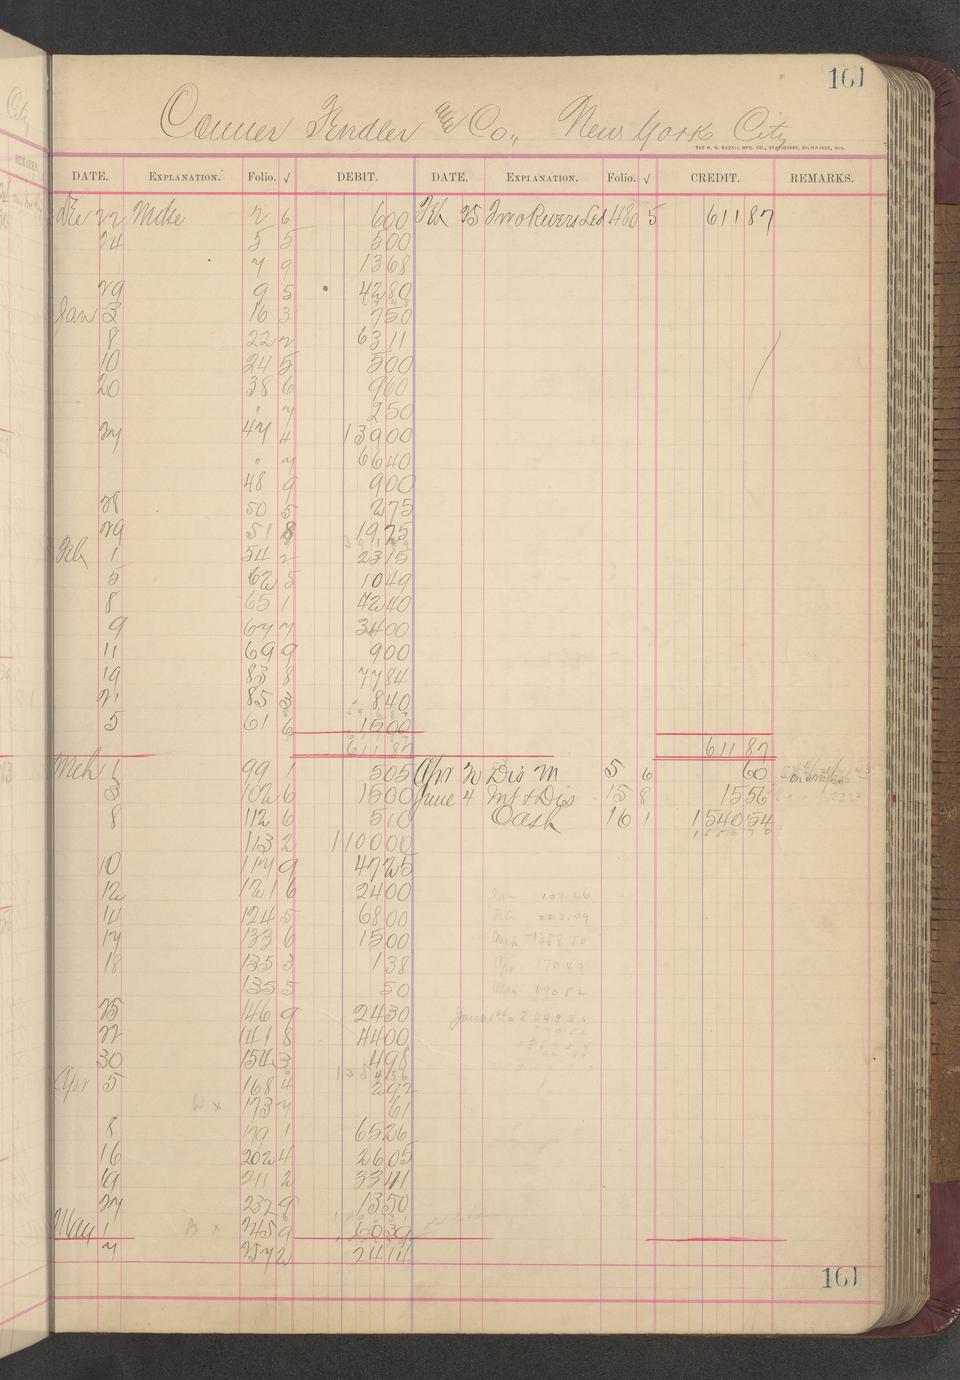 161
Conner Fendler & Co., New York City
THE H. G. RAZALL MFG. CO., STATIONERS, MILWAUKEE, WIS.
DATE. EXPLANATION. Folio. √ DEBIT. DATE. EXPLANATION. Folio. √ CREDIT. REMARKS.
Dec 22 Mdse 2 6 600 Feb 25 Two Rivers Led 480 5 611 87
24 5 5 500
7 9 1368
29 9 5 4280
Jan 3 16 3 750
8 22 2 6311
10 24 5 500
20 38 6 960
" 7 250
27 47 4 13900
" 7 6640
48 9 900
28 50 5 275
29 51 8 1975
Feb 1 54 2 2315
5 62 5 1049
8 65 1 4240
9 67 7 3400
11 69 9 900
19 83 8 7784
21 85 3 840
5 61 6 1500
611 87 611 87
Mch 1 99 1 505 Apr 20 Dis M 5 6 60
3 102 6 1500 June 4 Int & Dis 15 8 15 56
8 112 6 510 Cash 16 1 1540 54
113 2 110000
10 117 9 4725
12 121 6 2400
14 124 5 6800
17 133 6 1500
18 135 3 138
135 5 50
25 146 9 2430
22 141 8 4400
30 154 3 498
Apr 5 168 4 292
173 7 61
8 179 1 6526
16 202 4 2605
19 211 2 3341
27 232 9 1350
May 1 245 9 6039
7 257 2 2414
161